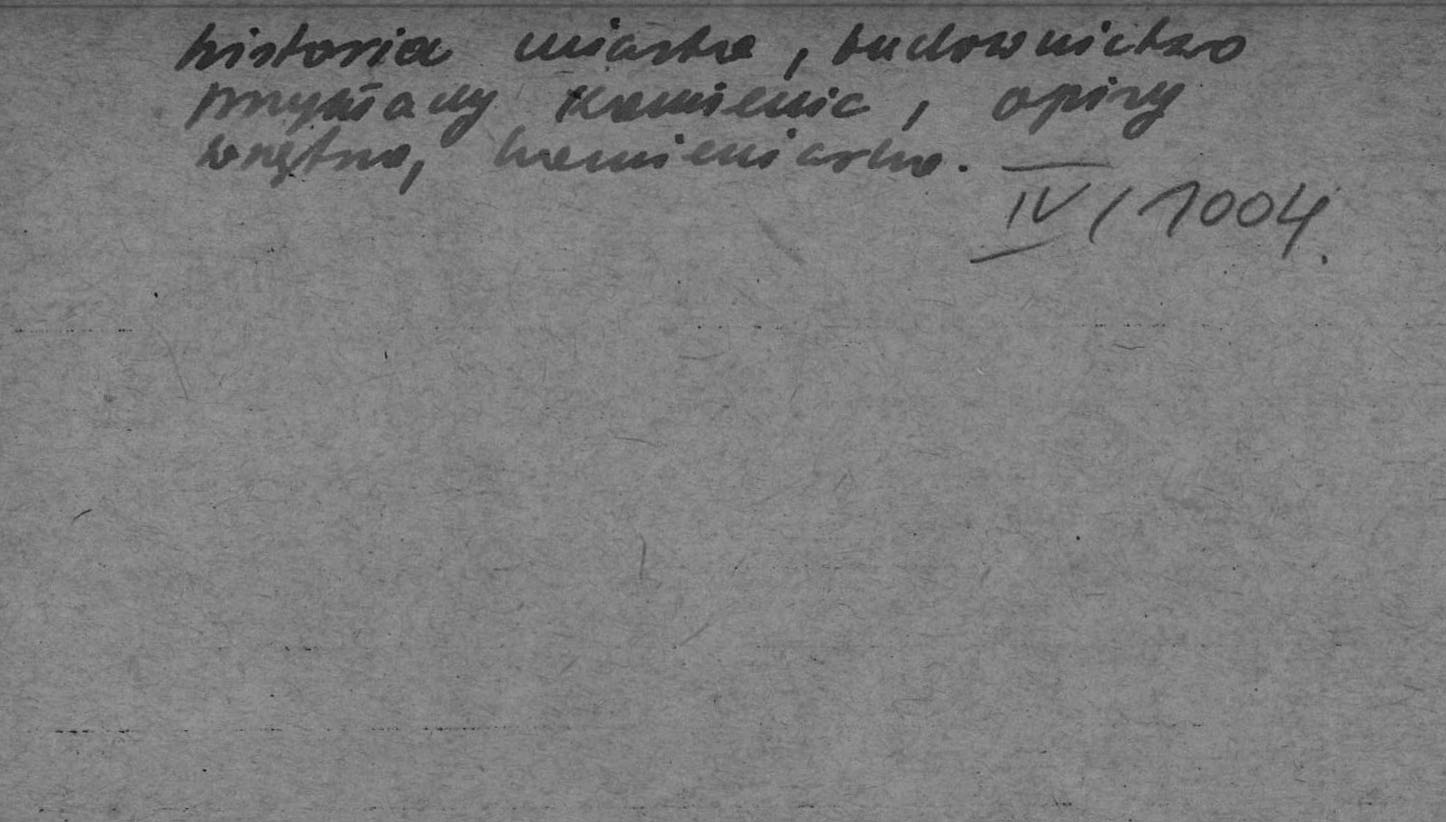 historia miasta, budownictwo
przykłady kamienic, opisy
wnętrz, kamieniarka.
IV/1004.